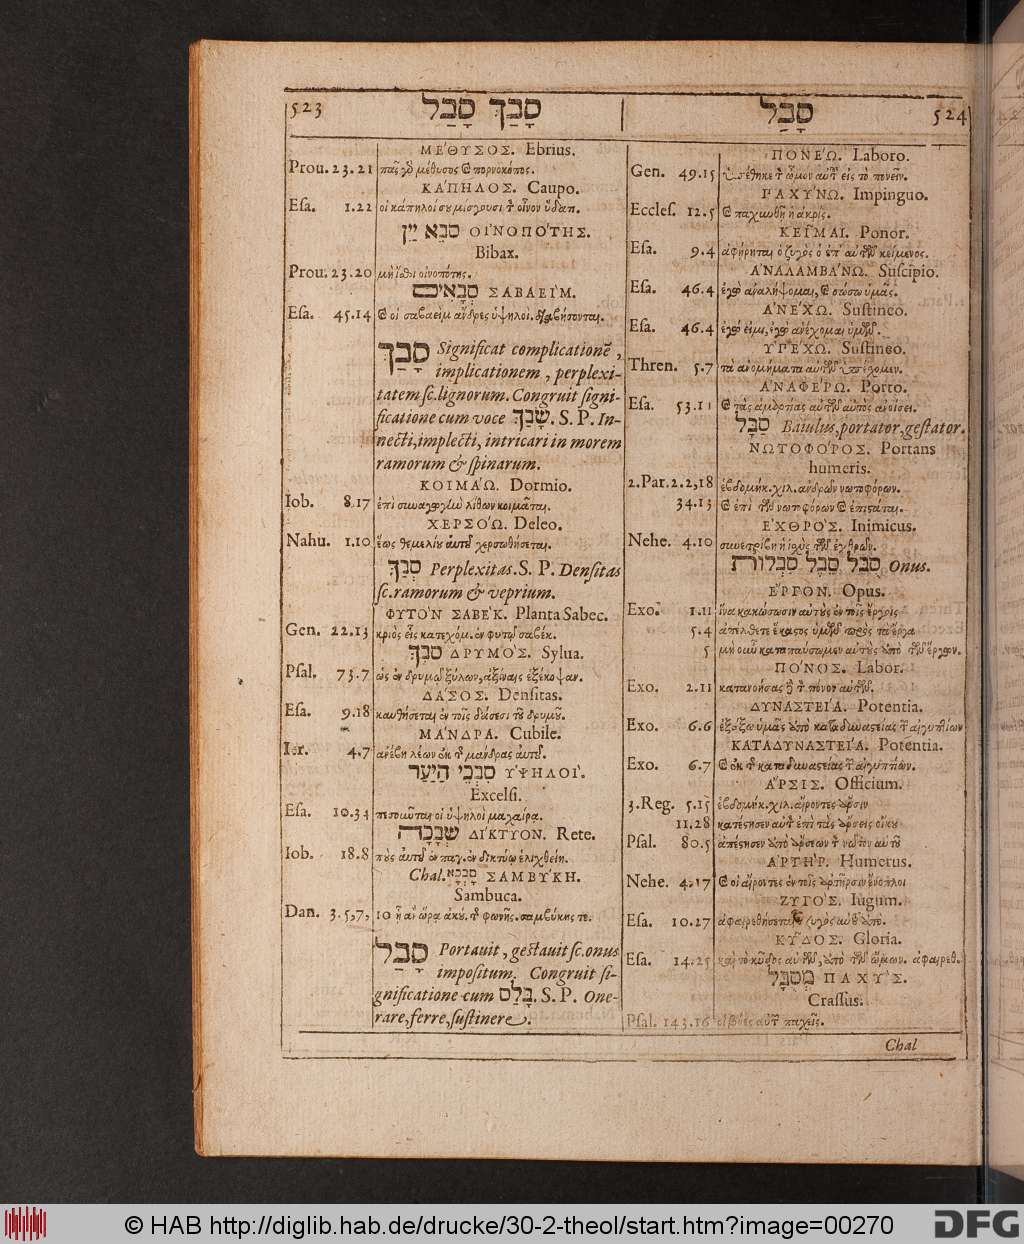 523 סָבַךְ סָבַל
ΜΕ'ΘΥΣΟΣ. Ebrius.
Prou. 23.21 πᾶς γὸ μέθυσος καὶ πορνοκόπος.
ΚΑ'ΠΗΛΟΣ. Caupo.
Esa. 1.22 οἱ κάπηλοί σου μίσγουσι τὸν οἶνον ὕδατι.
סֹבֵא יַיִן ΟΙ'ΝΟΠΟ'ΤΗΣ.
Bibax.
Prou. 23.20 μὴ ἴσθι οἰνοπότης.
סְבָאִים ΣΑΒΑΕΙ'Μ.
Esa. 45.14 καὶ οἱ σαβαεὶμ ἄνδρες ὑψηλοὶ, διαβήσονται.
סָבַךְ Significat complicationē,
implicationem, perplexi-
tatem sc. lignorum. Congruit signi-
ficatione cum voce שָׂבַךְ. S. P. In-
necti, implecti, intricari in morem
ramorum & spinarum.
ΚΟΙΜΑ'Ω. Dormio.
Iob. 8.17 ἐπὶ συναγωγὴν λίθων κοιμᾶται.
ΧΕΡΣΟ'Ω. Deleo.
Nahu. 1.10 ἕως θεμελίου αὐτοῦ χερσωθήσεται.
סְבַךְ Perplexitas. S. P. Densitas
sc. ramorum & veprium.
ΦΥΤΟ'Ν ΣΑΒΕ'Κ. Planta Sabec.
Gen. 22.13 κριὸς εἷς κατεχόμ. ἐν φυτῷ σαβέκ.
סבך ΔΡΥΜΟ'Σ. Sylua.
Psal. 73.7 ὡς ἐν δρυμῷ ξύλων, ἀξίναις ἐξέκοψαν.
ΔΑ'ΣΟΣ. Densitas.
Esa. 9.18 καυθήσεται ἐν τοῖς δάσεσι τοῦ δρυμοῦ.
ΜΑ'ΝΔΡΑ. Cubile.
Ier. 4.7 ἀνέβη λέων ἐκ τῆς μάνδρας αὐτοῦ.
סִבְכֵי הַיַּעַר ΥΨΗΛΟΙ'.
Excelsi.
Esa. 10.34 πεσοῦνται οἱ ὑψηλοὶ μαχαίρᾳ.
שְׂבָכָה ΔΙ'ΚΤΥΟΝ. Rete.
Iob. 18.8 ποὺς αὐτοῦ ἐν παγ. ἐν δικτύῳ ἑλιχθείη.
Chal. סַבְּכָא ΣΑΜΒΥ'ΚΗ.
Sambuca.
Dan. 3.5,7,10 ᾗ ἂν ὥρᾳ ἀκού. τῆς φωνῆς. σαμβύκης τε.
סָבַל Portauit, gestauit sc. onus
impositum. Congruit si-
gnificatione cum בָּלַם. S. P. One-
rare, ferre, sustinere.
סָבַל 524
ΠΟΝΕ'Ω. Laboro.
Gen. 49.15 ὑπέθηκε τὸν ὦμον αὐτοῦ εἰς τὸ πονεῖν.
ΠΑΧΥ'ΝΩ. Impinguo.
Eccles. 12.5 καὶ παχυνθῇ ἡ ἀκρίς.
ΚΕΙ͂ΜΑΙ. Ponor.
Esa. 9.4 ἀφῄρηται ὁ ζυγὸς ὁ ἐπ' αὐτῶν κείμενος.
ΑΝΑΛΑΜΒΑ'ΝΩ. Suscipio.
Esa. 46.4 ἐγὼ ἀναλήψομαι, καὶ σώσω ὑμᾶς.
ΑΝΕ'ΧΩ. Sustineo.
Esa. 46.4 ἐγώ εἰμι, ἐγὼ ἀνέχομαι ὑμῶν.
ΥΠΕ'ΧΩ. Sustineo.
Thren. 5.7 τὰ ἀνομήματα αὐτῶν ὑπέσχομεν.
ΑΝΑΦΕ'ΡΩ. Porto.
Esa. 53.11 καὶ τὰς ἁμαρτίας αὐτῶν αὐτὸς ἀνοίσει.
סַבָּל Baiulus, portator, gestator.
ΝΩΤΟΦΟ'ΡΟΣ. Portans
humeris.
2.Par. 2.2,18 ἑβδομήκ. χιλ. ἀνδρῶν νωτοφόρων.
34.13 καὶ ἐπὶ τῶν νωτοφόρων καὶ ἐπιστάται.
ΕΧΘΡΟ'Σ. Inimicus.
Nehe. 4.10 συνετρίβη ἡ ἰσχὺς τῶν ἐχθρῶν.
סֹבֶל סֵבֶל סִבְלוֹת Onus.
Ε'ΡΓΟΝ. Opus.
Exo. 1.11 ἵνα κακώσωσιν αὐτοὺς ἐν τοῖς ἔργοις
5.4 ἀπέλθετε ἕκαστος ὑμῶν πρὸς τὰ ἔργα
5 μὴ οὖν καταπαύσωμεν αὐτοὺς ἀπὸ τῶν ἔργων.
ΠΟ'ΝΟΣ. Labor.
Exo. 2.11 κατανοήσας δὲ τὸν πόνον αὐτῶν.
ΔΥΝΑΣΤΕΙ'Α. Potentia.
Exo. 6.6 ἐξάξω ὑμᾶς ἀπὸ καταδυναστείας τῶν αἰγυπτίων
ΚΑΤΑΔΥΝΑΣΤΕΙ'Α. Potentia.
Exo. 6.7 καὶ ἐκ τῆς καταδυναστείας τῶν αἰγυπτίων.
Α'ΡΣΙΣ. Officium.
3.Reg. 5.15 ἑβδομήκ. χιλ. αἴροντες ἄρσιν
11.28 κατέστησεν αὐτὸν ἐπὶ τὰς ἄρσεις οἴκου
Psal. 80.5 ἀπέστησεν ἀπὸ ἄρσεων τὸν νῶτον αὐτοῦ
ΑΡΤΗ'Ρ. Humerus.
Nehe. 4.17 καὶ οἱ αἴροντες ἐν τοῖς ἀρτῆρσιν ἔνοπλοι
ΖΥΓΟ'Σ. Iugum.
Esa. 10.27 ἀφαιρεθήσεται ὁ ζυγὸς αὐτοῦ ἀπό.
ΚΥ͂ΔΟΣ. Gloria.
Esa. 14.25 καὶ τὸ κῦδος αὐτῶν, ἀπὸ τῶν ὤμων. ἀφαιρεθ.
מְסֻבָּל ΠΑΧΥ'Σ.
Crassus.
Psal. 143.16 οἱ βόες αὐτῶν παχεῖς.
Chal
© HAB http://diglib.hab.de/drucke/30-2-theol/start.htm?image=00270
DFG